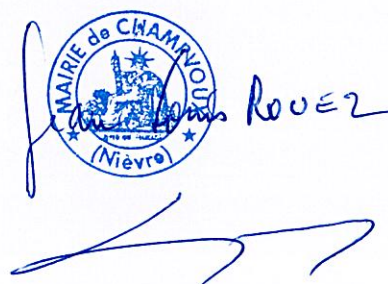 MAIRIE de CHAMPVOUX
(Nièvre)
Jean Louis ROUEZ